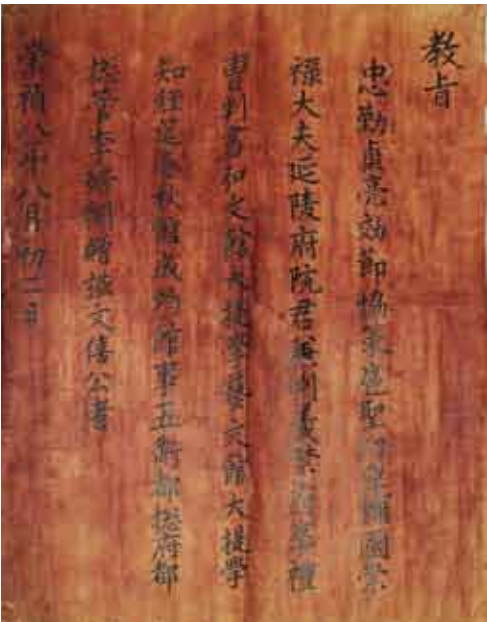 教旨
忠勤貞亮効節協策扈聖功臣輔國崇
祿大夫延陵府院君兼判義禁府事禮
曹判書弘文館大提學藝文館大提學
知經筵春秋館成均館事五衛都摠府都
摠管李好閔贈謚文僖公者
崇禎八年八月初二日